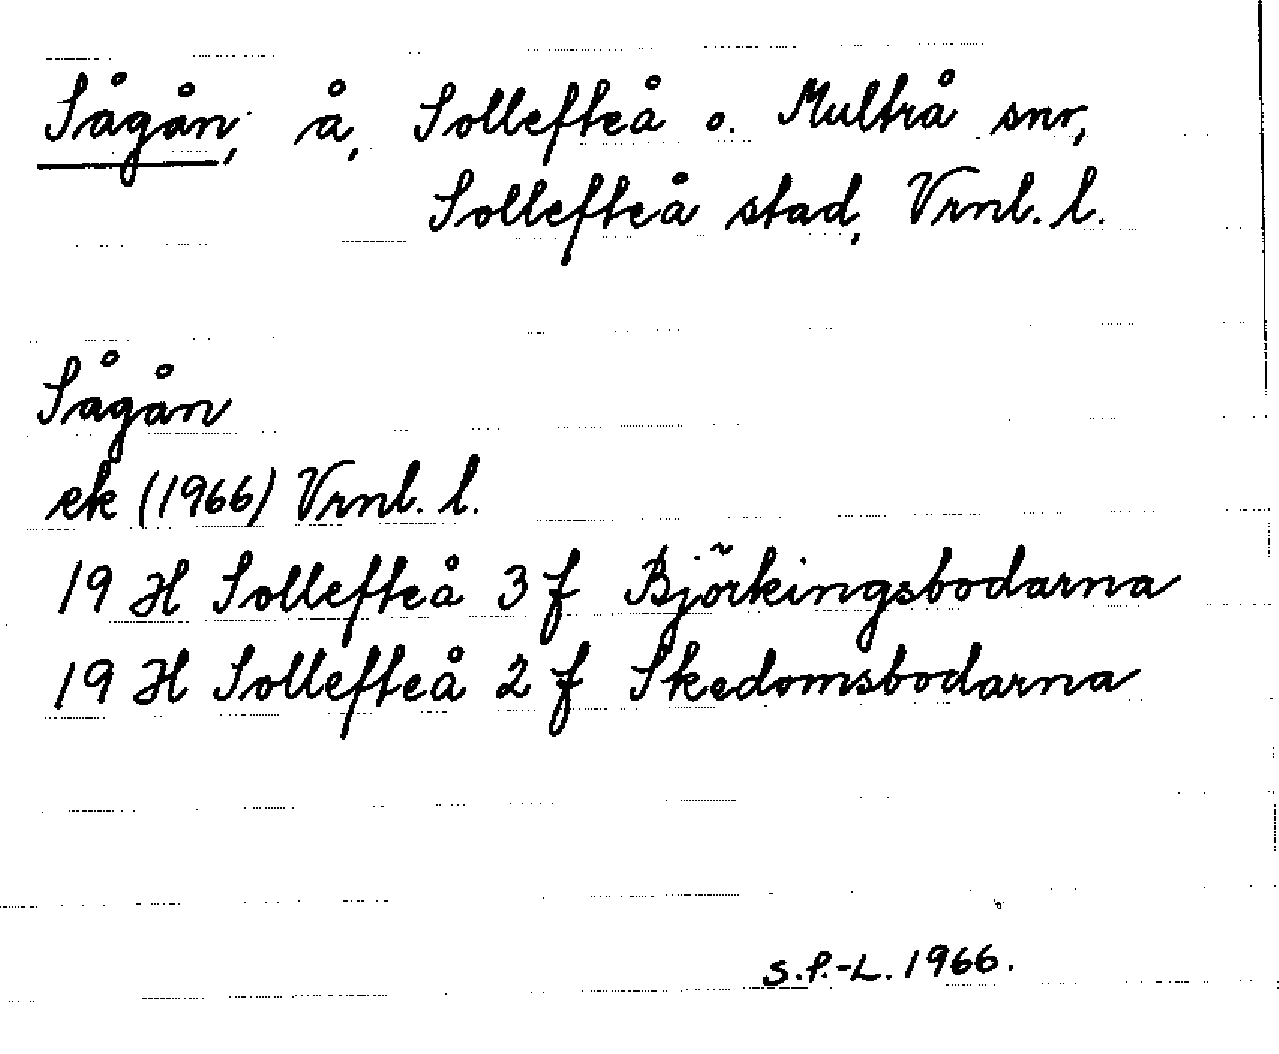 Sågån, å, Sollefteå o. Multrå snr,
Sollefteå stad, Vrnl. l.
Sågån
ek (1966) Vrnl. l.
19 H Sollefteå 3 f Björkingsbodarna
19 H Sollefteå 2 f Skedomsbodarna
S.P.-L. 1966.